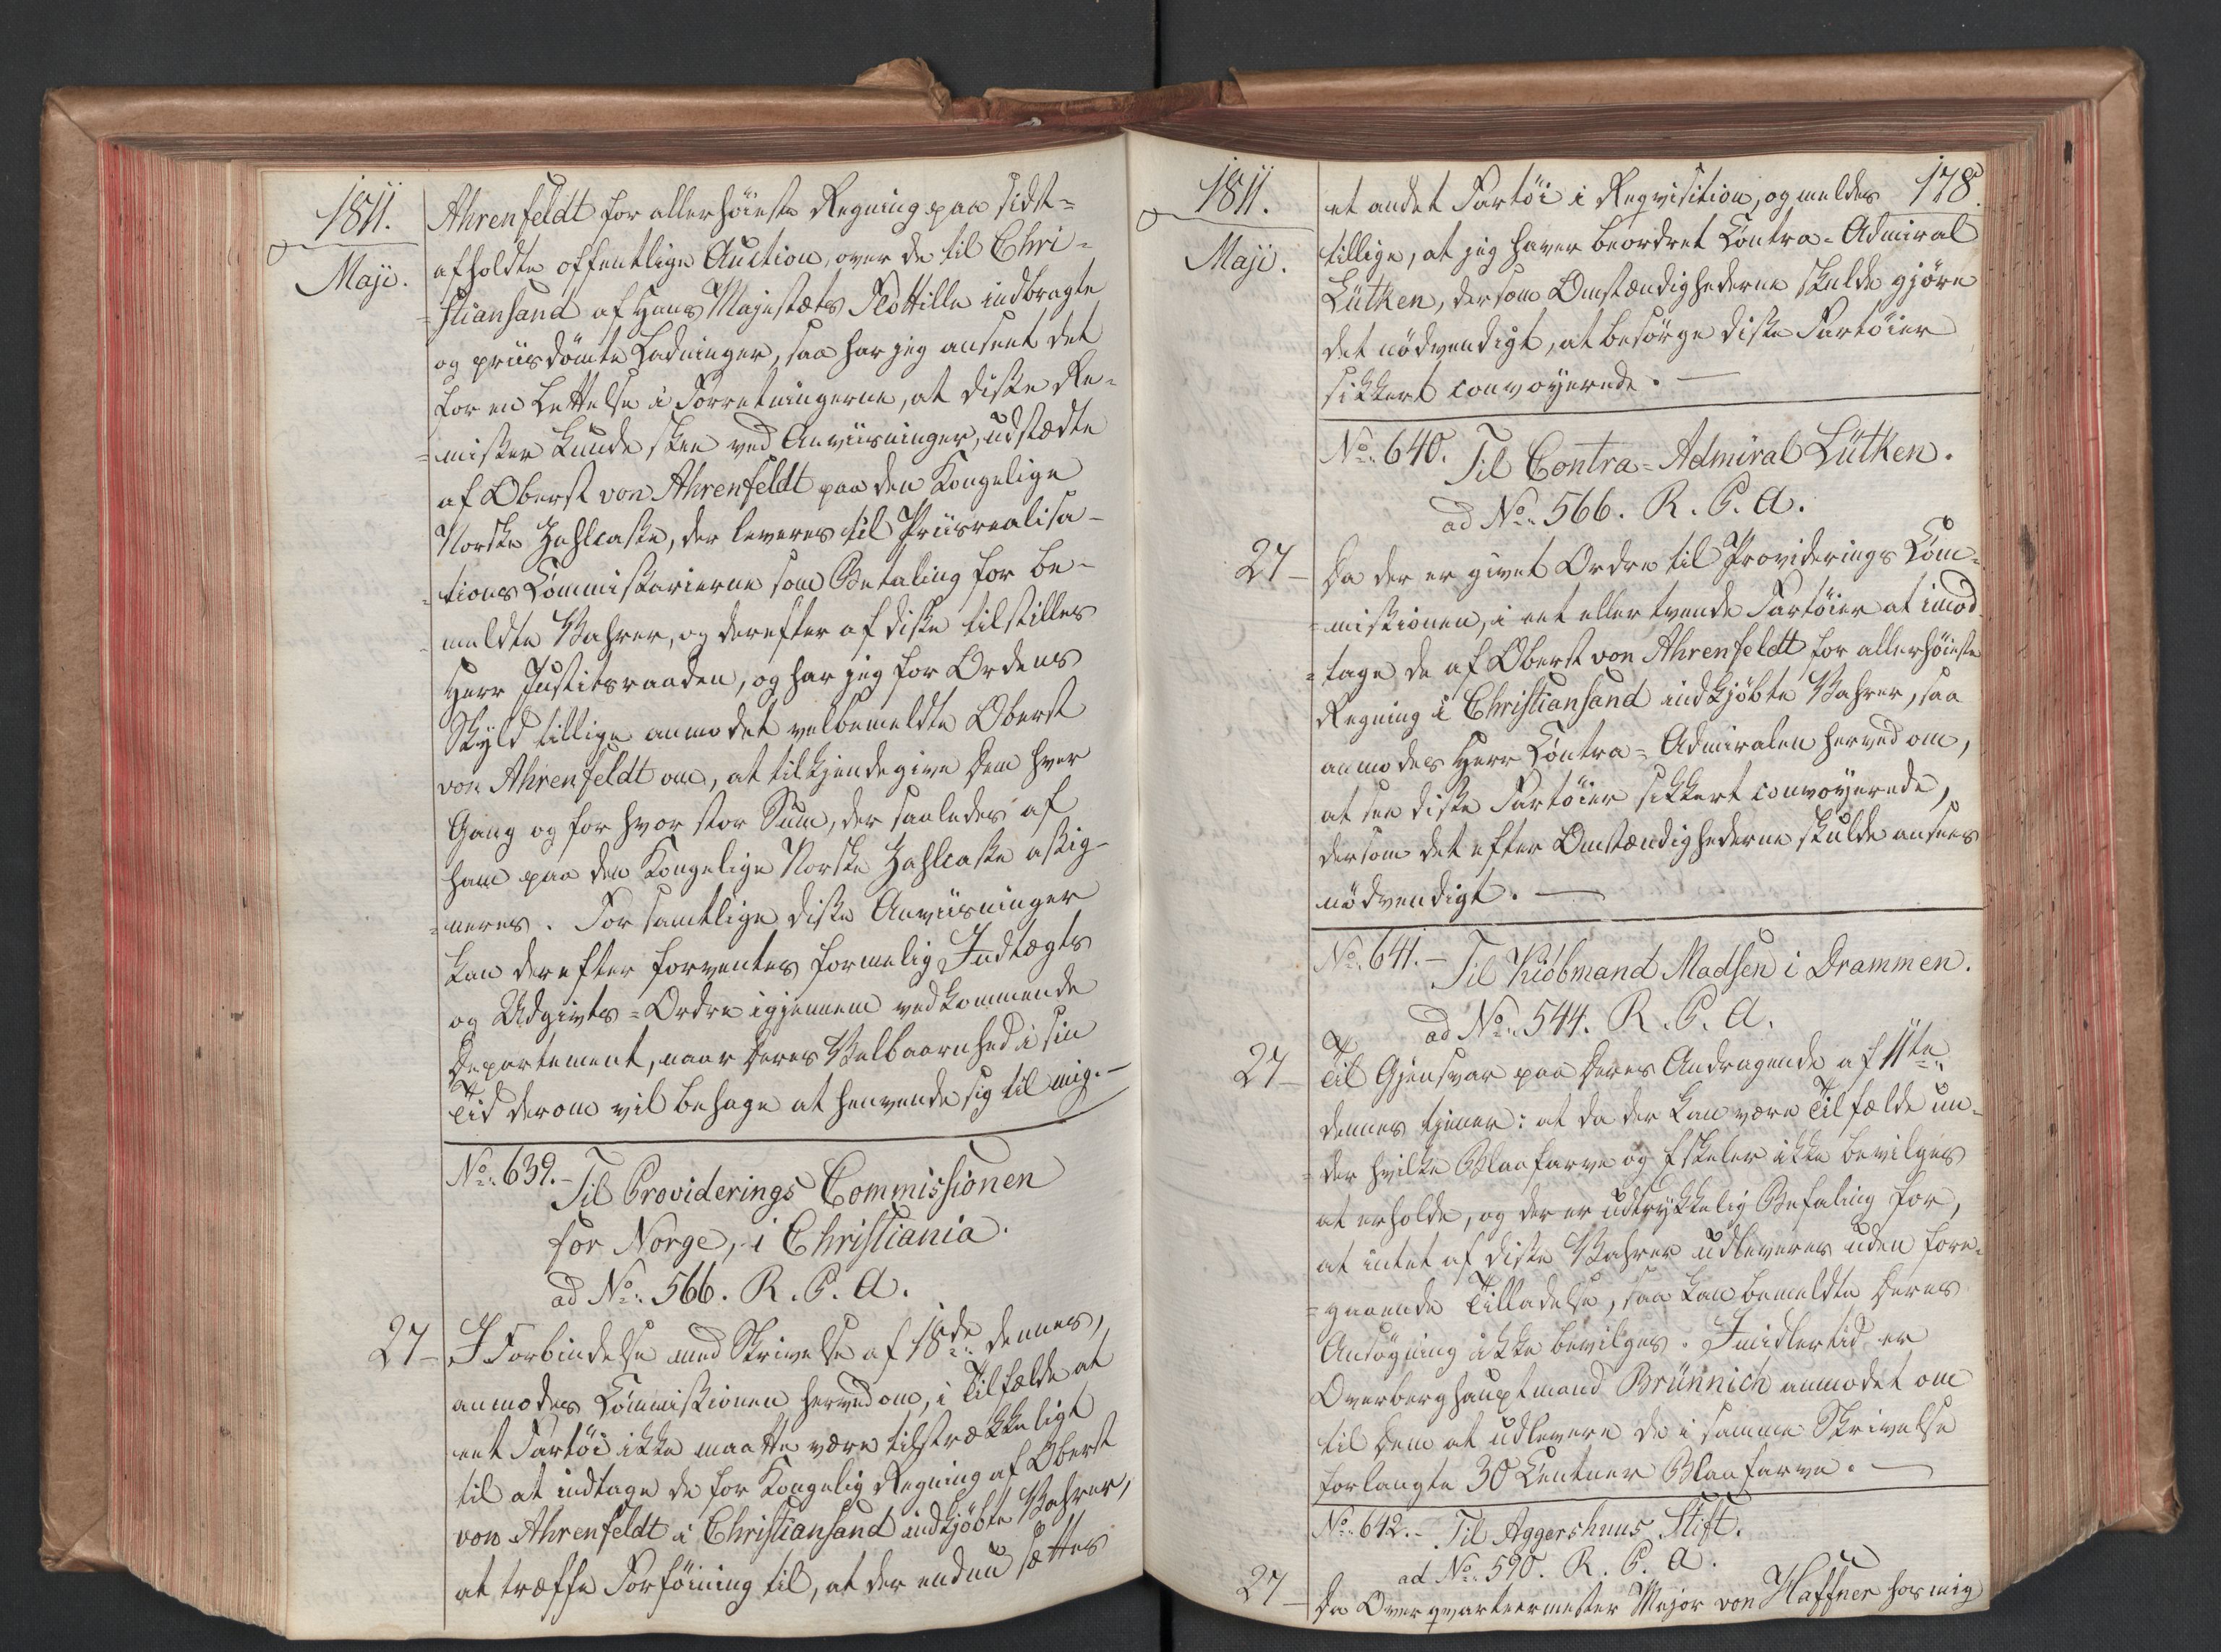 1811.
Maji.
Ahrenfeldt for allerhöieste Regning paa sidst=
afholdte offentlige Auction, over de til Chri=
=stiansand af Hans Majestæts Flottille indbragte
og priisdömte Ladninger, saa har jeg anseet det
for en Lettelse i Forretningerne, at disse Re=
=misser kunde skee ved Anviisninger, udstædte
af Oberst von Ahrenfeldt paa den Kongelige
Norske Zahlcasse, der leveres til Priisrealisa=
=tions Commissarierne som Betaling for be=
=meldte Vahrer, og derefter af disse tilstilles
Herr Justitsraaden, og har jeg for Ordens
Skyld tillige anmodet velbemeldte Oberst
von Ahrenfeldt om, at tilkjendegive Dem hver
Gang og for hvor stor Sum, der saaledes af
ham paa den Kongelige Norske Zahlcasse assig=
=neres. For samtlige disse Anviisninger
kan derefter forventes formelig Indtægts
og Udgivts=Ordre igjennem vedkommende
Departement, naar Deres Velbaarnhed i sin
Tid derom vil behage at henvende sig til mig.—
No. 639.— Til Providerings Commissionen
for Norge, i Christiania.
ad No. 566. R. P. A.
27— I Forbindelse med Skrivelse af 18de dennes,
anmodes Commissionen herved om, i Tilfælde at
eet Fartöi ikke maatte være tilstrækkeligt
til at indtage de for Kongelig Regning af Oberst
von Ahrenfeldt i Christiansand indkjöbte Vahrer,
at træffe Forföining til, at der endnu sættes
1811.
Maji.
178.
et andet Fartöi i Reqvisition, og meldes
tillige, at jeg haver beordret Contra=Admiral
Lütken, dersom Omstændighederne skulde gjöre
det nödvendigt, at besörge disse Fartöier
sikkert convoyerede.—
No. 640. Til Contra=Admiral Lütken.
ad No. 566. R. P. A.
27— Da der er givet Ordre til Providerings Com=
=missionen, i eet eller tvende Fartöier at imod=
=tage de af Oberst von Ahrenfeldt for allerhöieste
Regning i Christiansand indkjöbte Vahrer, saa
anmodes Herr Contra=Admiralen herved om,
at see disse Fartöier sikkert convoyerede,
dersom det efter Omstændighederne skulde ansees
nödvendigt.—
No. 641.— Til Kiöbmand Madsen i Drammen.
ad No. 544. R. P. A.
27— Til Gjensvar paa Deres Andragende af 11te
dennes tjener: at da der kan være Tilfælde un=
=der hvilke Blaafarve og Eskeler ikke bevilges
at erholde, og der er udtrykkelig Befaling for,
at intet af disse Vahrer udleveres uden fore=
=gaaende Tilladelse, saa kan bemeldte Deres
Ansögning ikke bevilges. Imidlertid er
Overberghauptmand Brünnich anmodet om
til Dem at udlevere de i samme Skrivelse
forlangte 30 Centner Blaafarve.—
No. 642.— Til Aggershuus Stift.
ad No. 590. R. P. A.
27— Da Overqvarteermester Major von Haffner hos mig